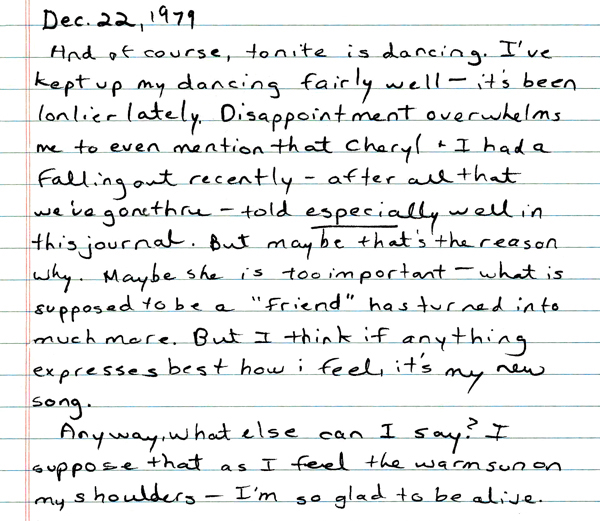 Dec. 22, 1979
And of course, tonite is dancing. I've
kept up my dancing fairly well — it's been
lonlier lately. Disappointment overwhelms
me to even mention that Cheryl + I had a
falling out recently - after all that
we've gone thru - told especially well in
this journal. But maybe that's the reason
why. Maybe she is too important — what is
supposed to be a "friend" has turned into
much more. But I think if anything
expresses best how i feel, it's my new
song.
Anyway, what else can I say? I
suppose that as I feel the warm sun on
my shoulders — I'm so glad to be alive.